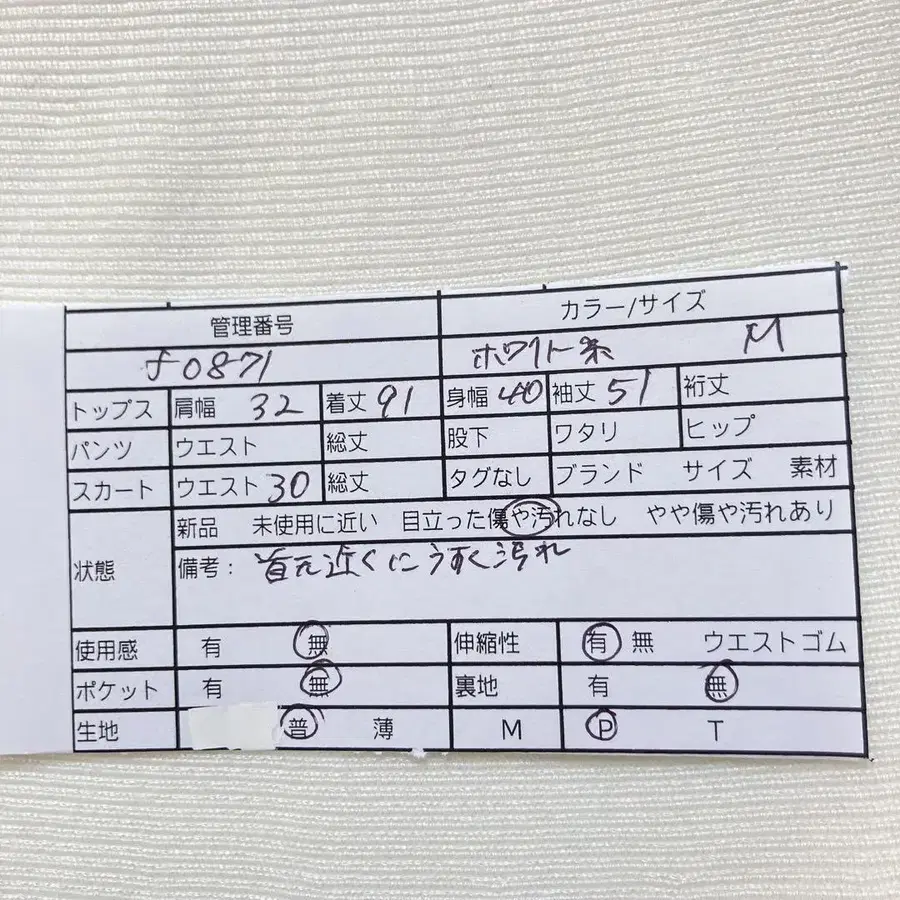 管理番号 カラー/サイズ
f0871 ホワイト系 M
トップス 肩幅 32 着丈 91 身幅 40 袖丈 51 裄丈
パンツ ウエスト 総丈 股下 ワタリ ヒップ
スカート ウエスト 30 総丈 タグなし ブランド サイズ 素材
状態 新品 未使用に近い 目立った傷や汚れなし やや傷や汚れあり
備考: 首元近くにうすく汚れ
使用感 有 無 伸縮性 有 無 ウエストゴム
ポケット 有 無 裏地 有 無
生地 普 薄 M P T